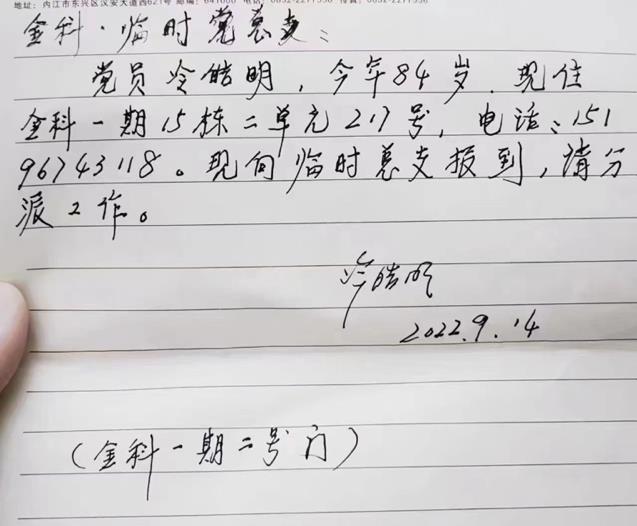 地址：内江市东兴区汉安大道西621号 邮编：641000 电话：0832-2277556 传真：0832-2277556
金科·临时党总支：
党员冷皓明，今年84岁.现住
金科一期15栋二单元217号，电话：151
96743118。现向临时总支报到，请分
派工作。
冷皓明
2022.9.14
（金科一期二号门）